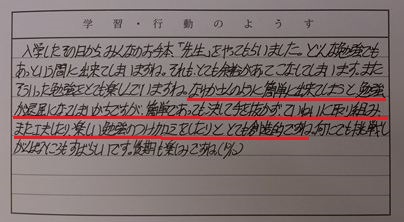 学習・行動のようす
入学したその日からみんなのお手本、「先生」をやってもらいました。どんな勉強でも
あっという間に出来てしまいますね。それも、とても余裕があってこなしてしまいます。また
そういった勉強をとても楽しんでいますね。なおかつ人のように簡単に出来てしまうと、勉強
が退屈になってしまいがちですが、簡単であっても決して手を抜かずていねいに取り組み、
また工夫したり楽しい勉強のつけ加えをしたりと、とても創造的ですね。何にでも挑戦し
がんばるところもすばらしいです。後期も楽しみですね。